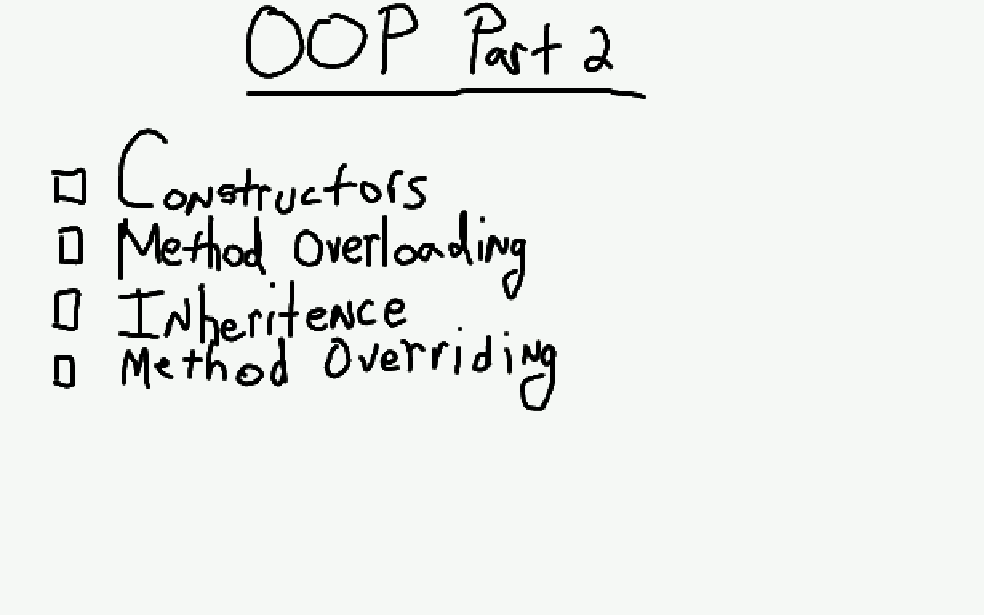 OOP Part 2
Constructors
Method Overloading
Inheritence
Method Overriding